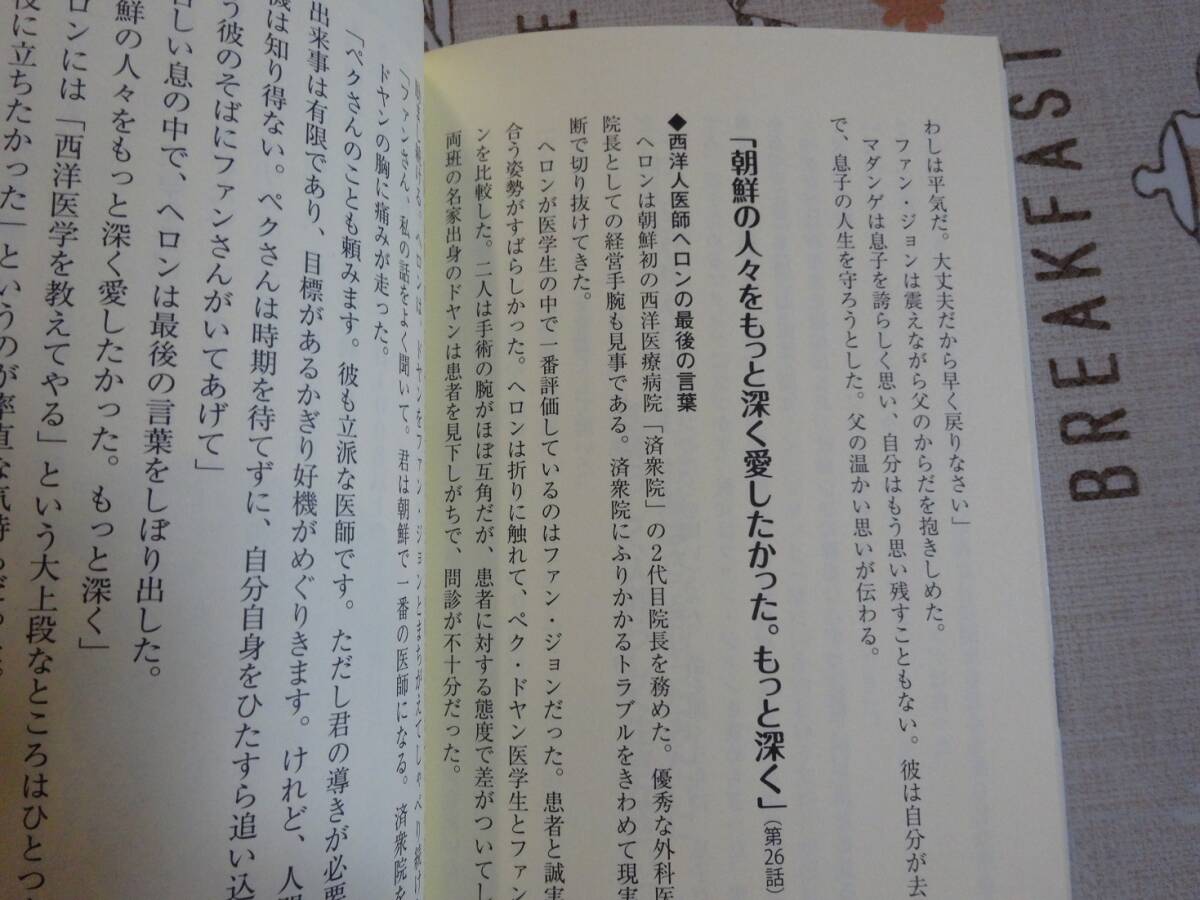 わしは平気だ。大丈夫だから早く戻りなさい」
ファン・ジョンは震えながら父のからだを抱きしめた。
マダンゲは息子を誇らしく思い、自分はもう思い残すこともない。彼は自分が去
で、息子の人生を守ろうとした。父の温かい思いが伝わる。
「朝鮮の人々をもっと深く愛したかった。もっと深く」(第26話)
◆西洋人医師ヘロンの最後の言葉
ヘロンは朝鮮初の西洋医療病院「済衆院」の2代目院長を務めた。優秀な外科医
院長としての経営手腕も見事である。済衆院にふりかかるトラブルをきわめて現実
断で切り抜けてきた。
ヘロンが医学生の中で一番評価しているのはファン・ジョンだった。患者と誠実
合う姿勢がすばらしかった。ヘロンは折りに触れて、ペク・ドヤン医学生とファン
ンを比較した。二人は手術の腕がほぼ互角だが、患者に対する態度で差がついてし
両班の名家出身のドヤンは患者を見下しがちで、問診が不十分だった。
ヘロンは、ドヤンをファン・ジョンとまちがえてしゃべり続け
「ファンさん、私の話をよく聞いて。君は朝鮮で一番の医師になる。済衆院を
ドヤンの胸に痛みが走った。
「ペクさんのことも頼みます。彼も立派な医師です。ただし君の導きが必要
出来事は有限であり、目標があるかぎり好機がめぐりきます。けれど、人間
機は知り得ない。ペクさんは時期を待てずに、自分自身をひたすら追い込
う彼のそばにファンさんがいてあげて」
しい息の中で、ヘロンは最後の言葉をしぼり出した。
鮮の人々をもっと深く愛したかった。もっと深く」
ロンには「西洋医学を教えてやる」という大上段なところはひとつ
に立ちたかった」というのが率直な気持ち
BREAKFAST